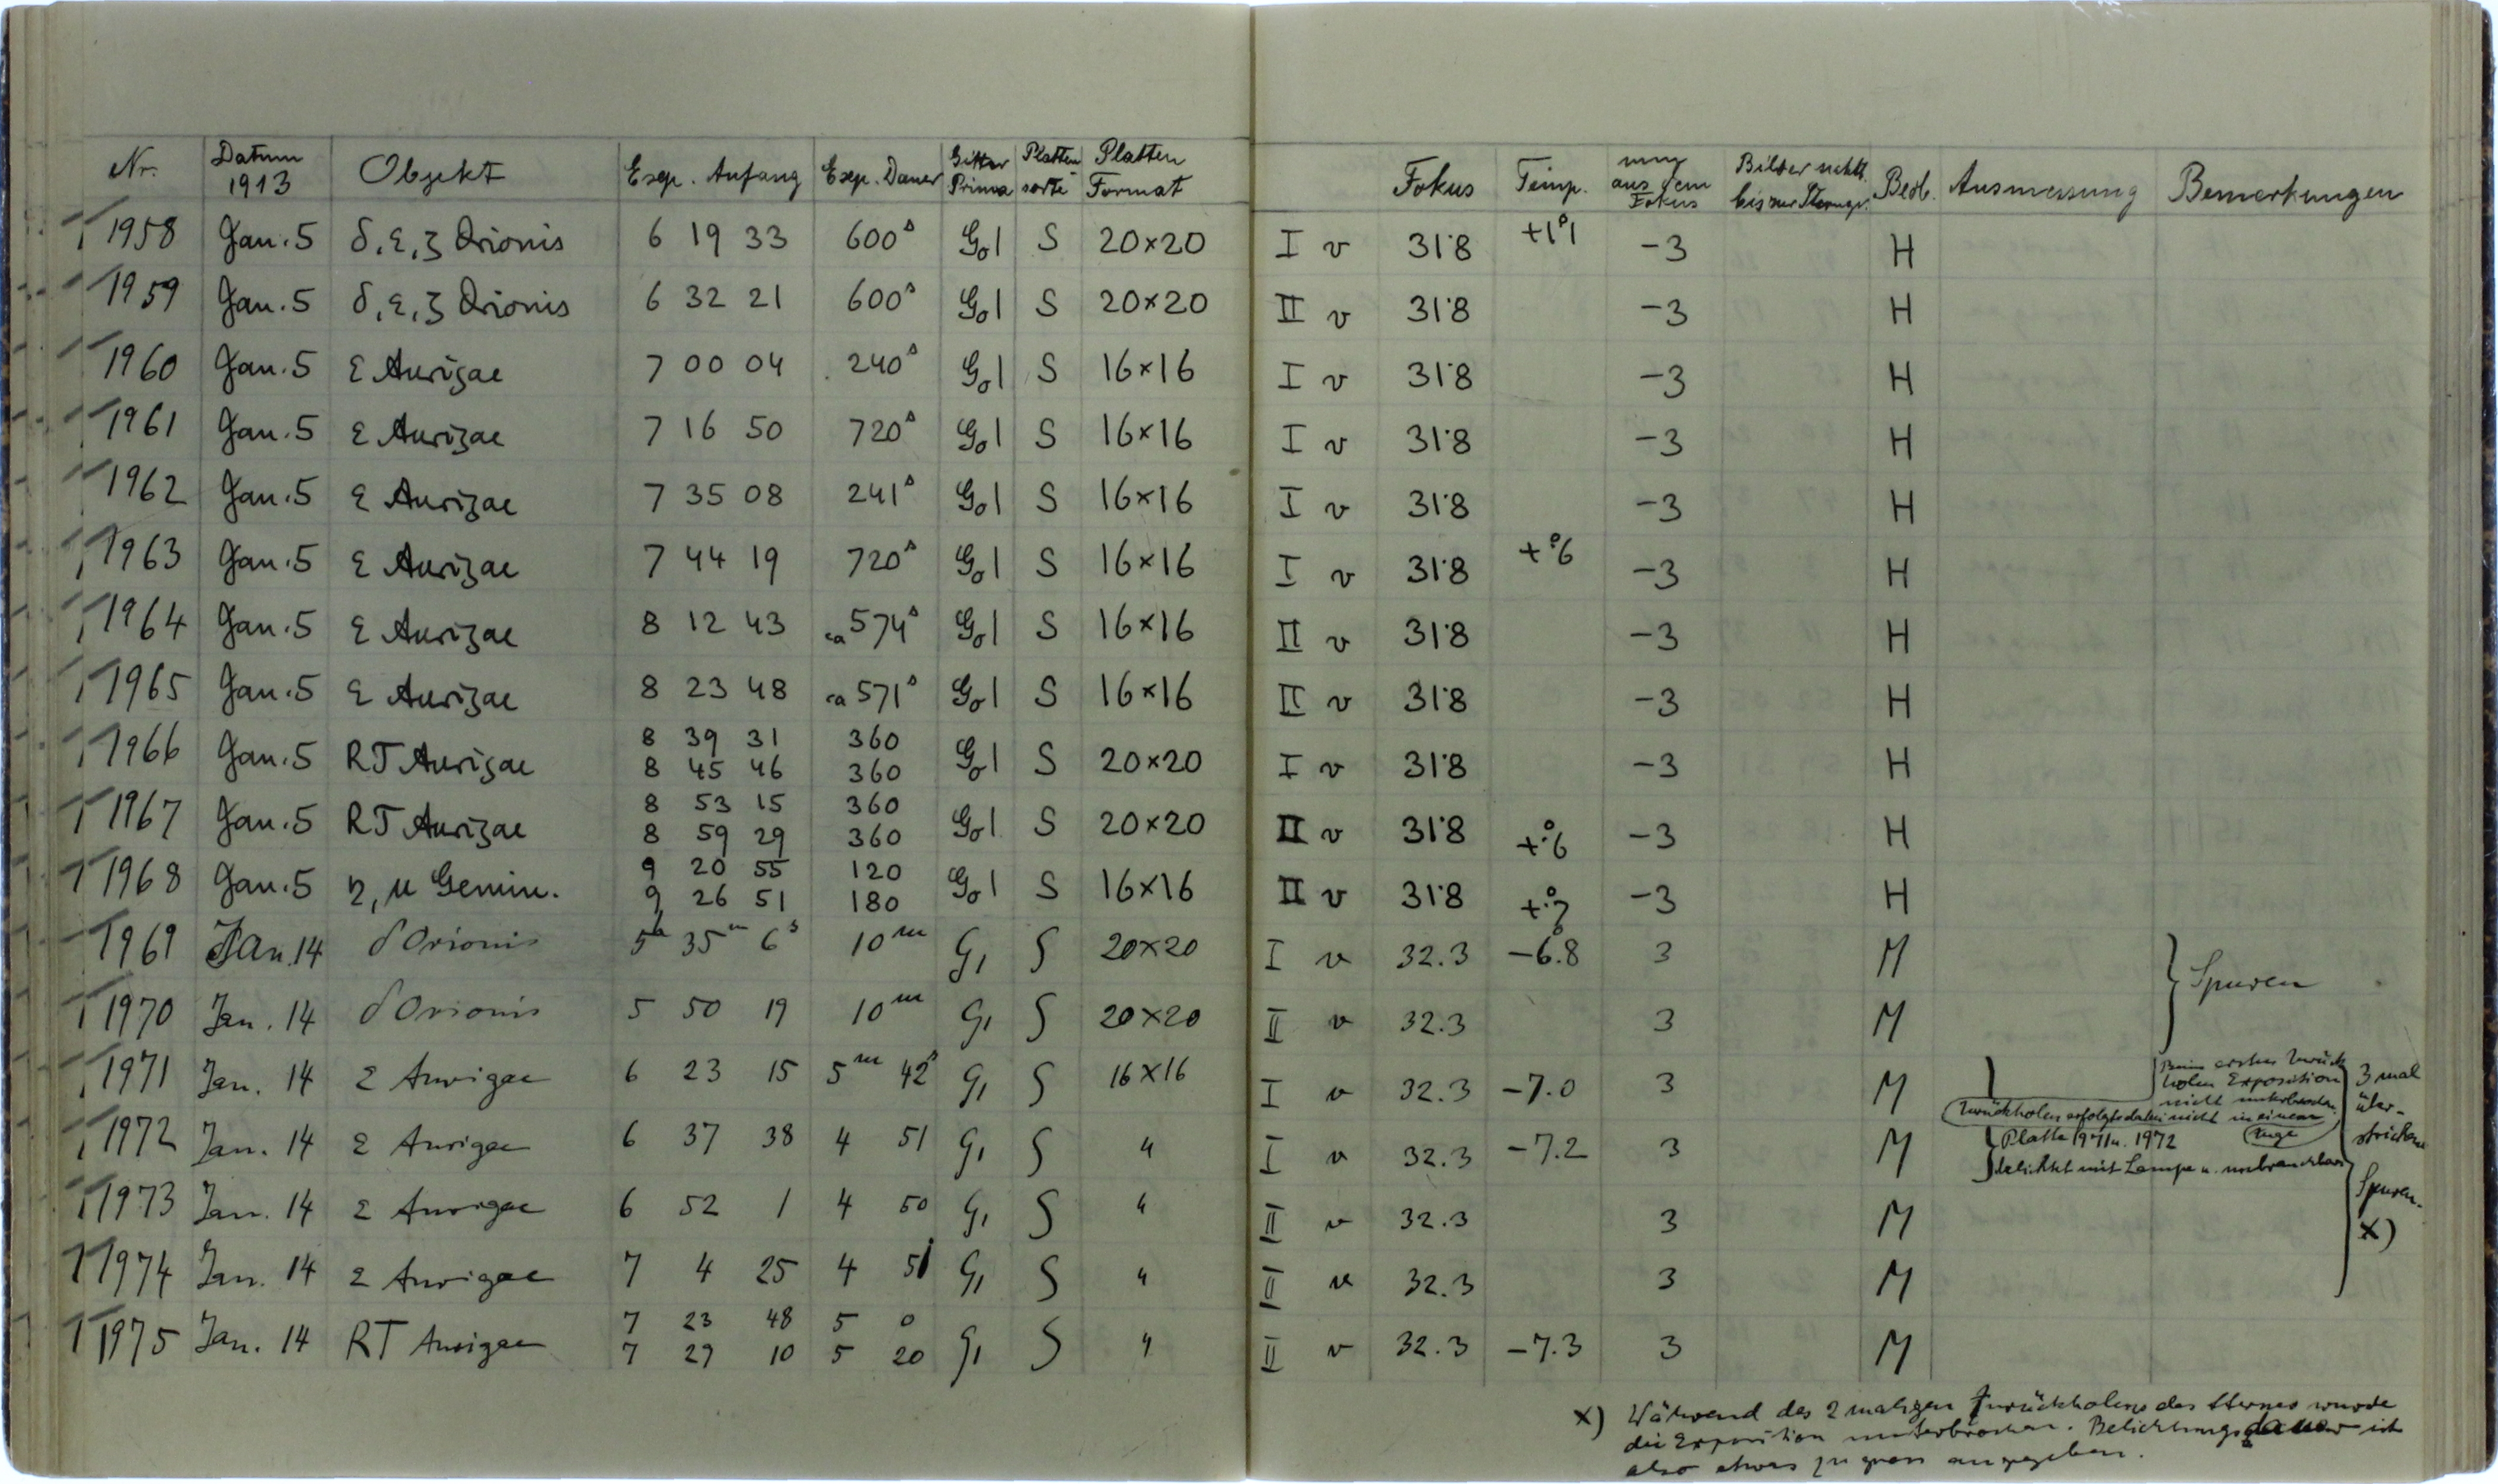 Nr. Datum 1913 Objekt Exp. Anfang Exp. Dauer Gitter Prisma Platten sorte Platten Format Fokus Temp. mm aus dem Fokus Bilder bis zur Beob. Ausmessung Bemerkungen
1958 Jan. 5 δ, ε, ζ Orionis 6 19 33 600ˢ G₀1 S 20×20 I v 31.8 +1°1 −3 H
1959 Jan. 5 δ, ε, ζ Orionis 6 32 21 600ˢ G₀1 S 20×20 II v 31.8 −3 H
1960 Jan. 5 ε Aurigae 7 00 04 240ˢ G₀1 S 16×16 I v 31.8 −3 H
1961 Jan. 5 ε Aurigae 7 16 50 720ˢ G₀1 S 16×16 I v 31.8 −3 H
1962 Jan. 5 ε Aurigae 7 35 08 241ˢ G₀1 S 16×16 I v 31.8 −3 H
1963 Jan. 5 ε Aurigae 7 44 19 720ˢ G₀1 S 16×16 I v 31.8 +°.6 −3 H
1964 Jan. 5 ε Aurigae 8 12 43 ca 574ˢ G₀1 S 16×16 II v 31.8 −3 H
1965 Jan. 5 ε Aurigae 8 23 48 ca 571ˢ G₀1 S 16×16 II v 31.8 −3 H
1966 Jan. 5 RT Aurigae 8 39 31 360 G₀1 S 20×20 I v 31.8 −3 H
8 45 46 360
1967 Jan. 5 RT Aurigae 8 53 15 360 G₀1 S 20×20 II v 31.8 +°.6 −3 H
8 59 29 360
1968 Jan. 5 η, μ Gemin. 9 20 55 120 G₀1 S 16×16 II v 31.8 −3 H
9 26 51 180
1969 Jan. 14 δ Orionis 5ʰ 35ᵐ 6ˢ 10ᵐ G₁ S 20×20 I v 32.3 −6.8 3 M } Spuren
1970 Jan. 14 δ Orionis 5 50 19 10ᵐ G₁ S 20×20 II v 32.3 3 M
1971 Jan. 14 ε Aurigae 6 23 15 5ᵐ 42ˢ G₁ S 16×16 I v 32.3 −7.0 3 M
Beim ersten Zurück
holen Exposition
nicht unterbrochen.
Zurückholen erfolgte dabei nicht in einem
Zuge
3 mal
über-
strichene
Spuren.
X)
1972 Jan. 14 ε Aurigae 6 37 38 4 51 G₁ S " I v 32.3 −7.2 3 M
Platte 1971 u. 1972
belichtet mit Lampe u. unbrauchbar
1973 Jan. 14 ε Aurigae 6 52 1 4 50 G₁ S " II v 32.3 3 M
1974 Jan. 14 ε Aurigae 7 4 25 4 51 G₁ S " II v 32.3 3 M
1975 Jan. 14 RT Aurigae 7 23 48 5 0 G₁ S " II v 32.3 −7.3 3 M
7 29 10 5 20
X) Während des 2 maligen Zurückholens des Sternes wurde
die Exposition unterbrochen. Belichtungsdauer ist
also etwas zu gross angegeben.